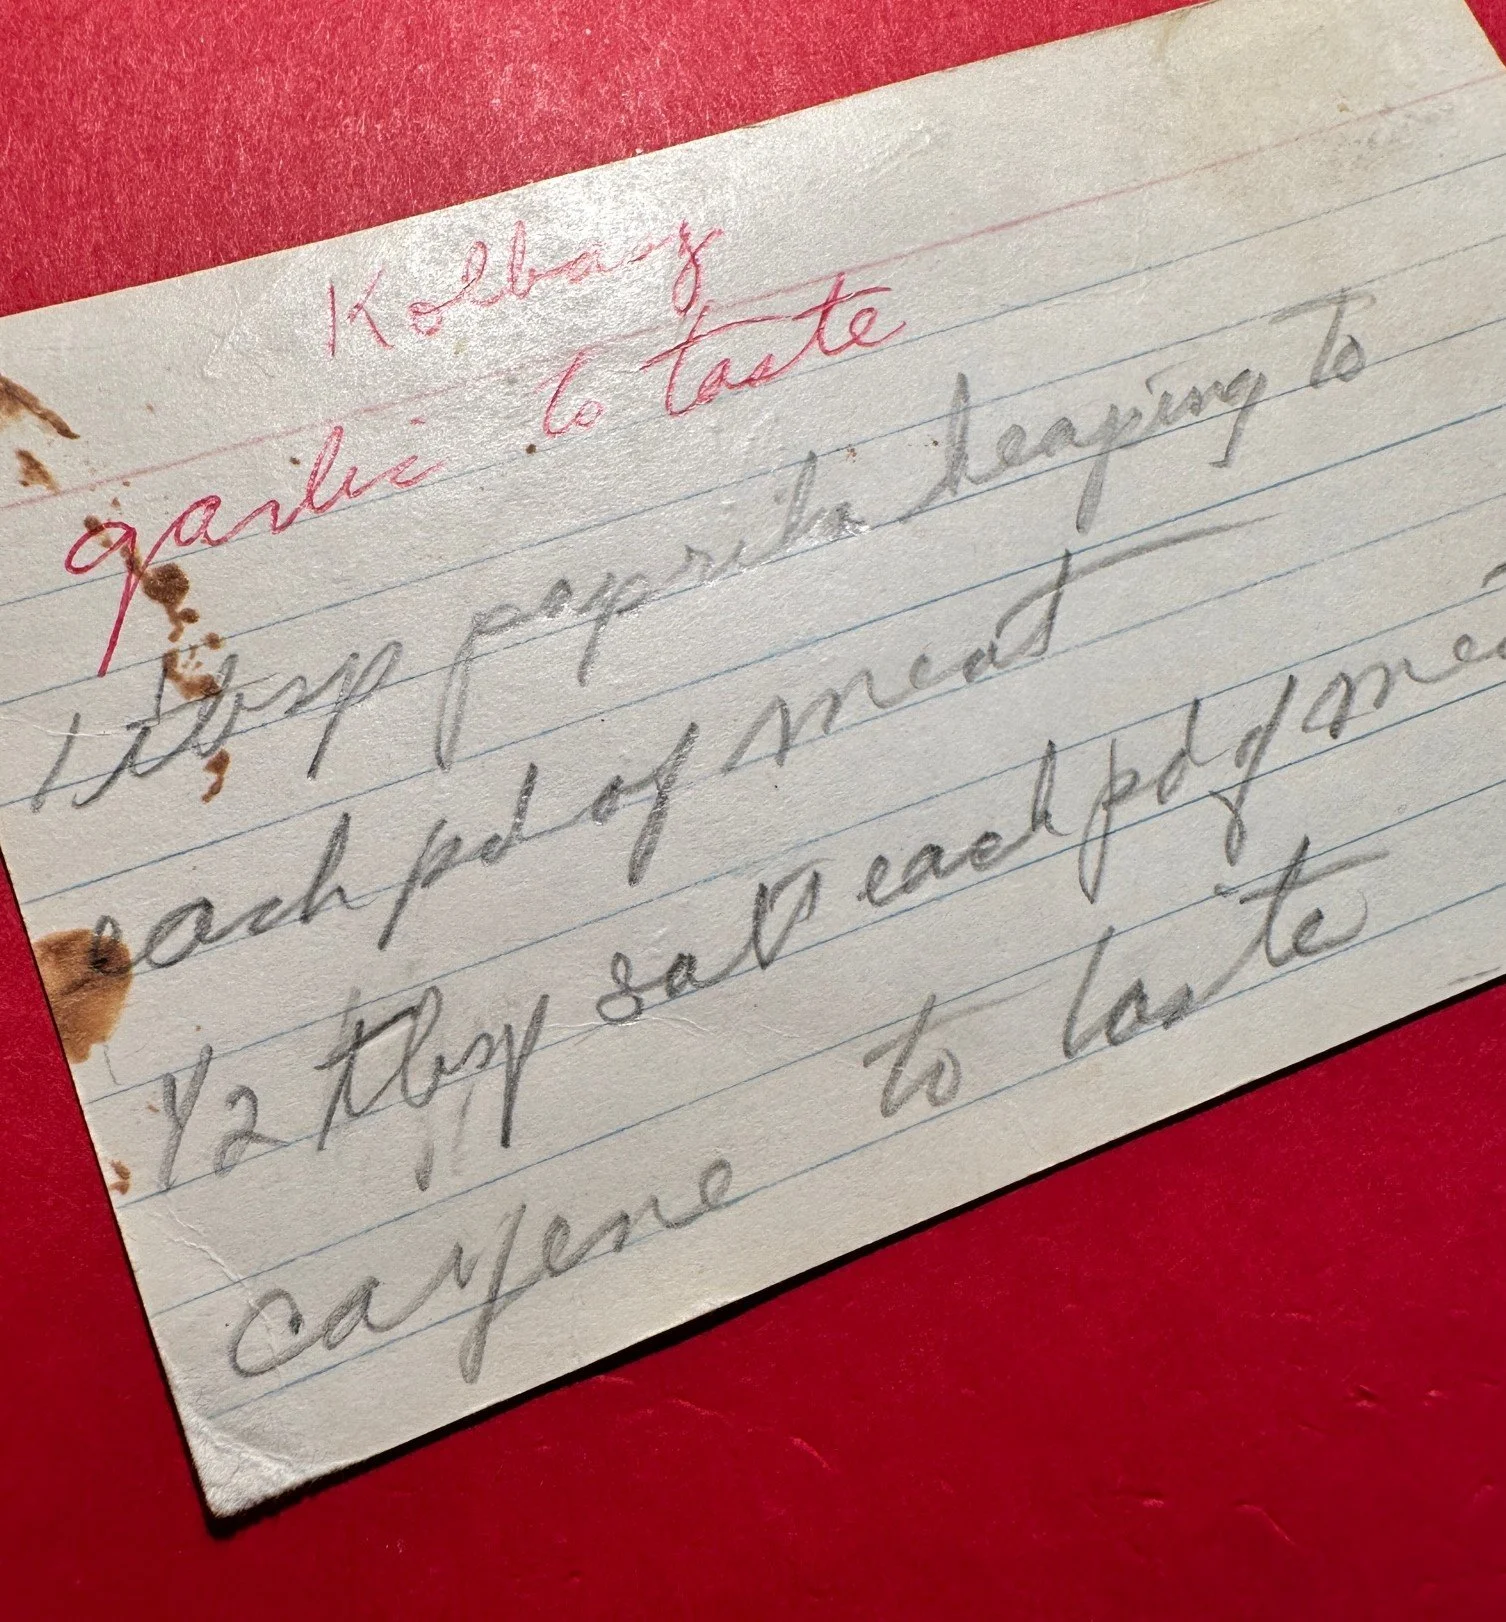 Kolbasz
garlic to taste
1 tbsp paprika heaping to
each pd of meat
1/2 tbsp salt each pd of mea
cayene to taste